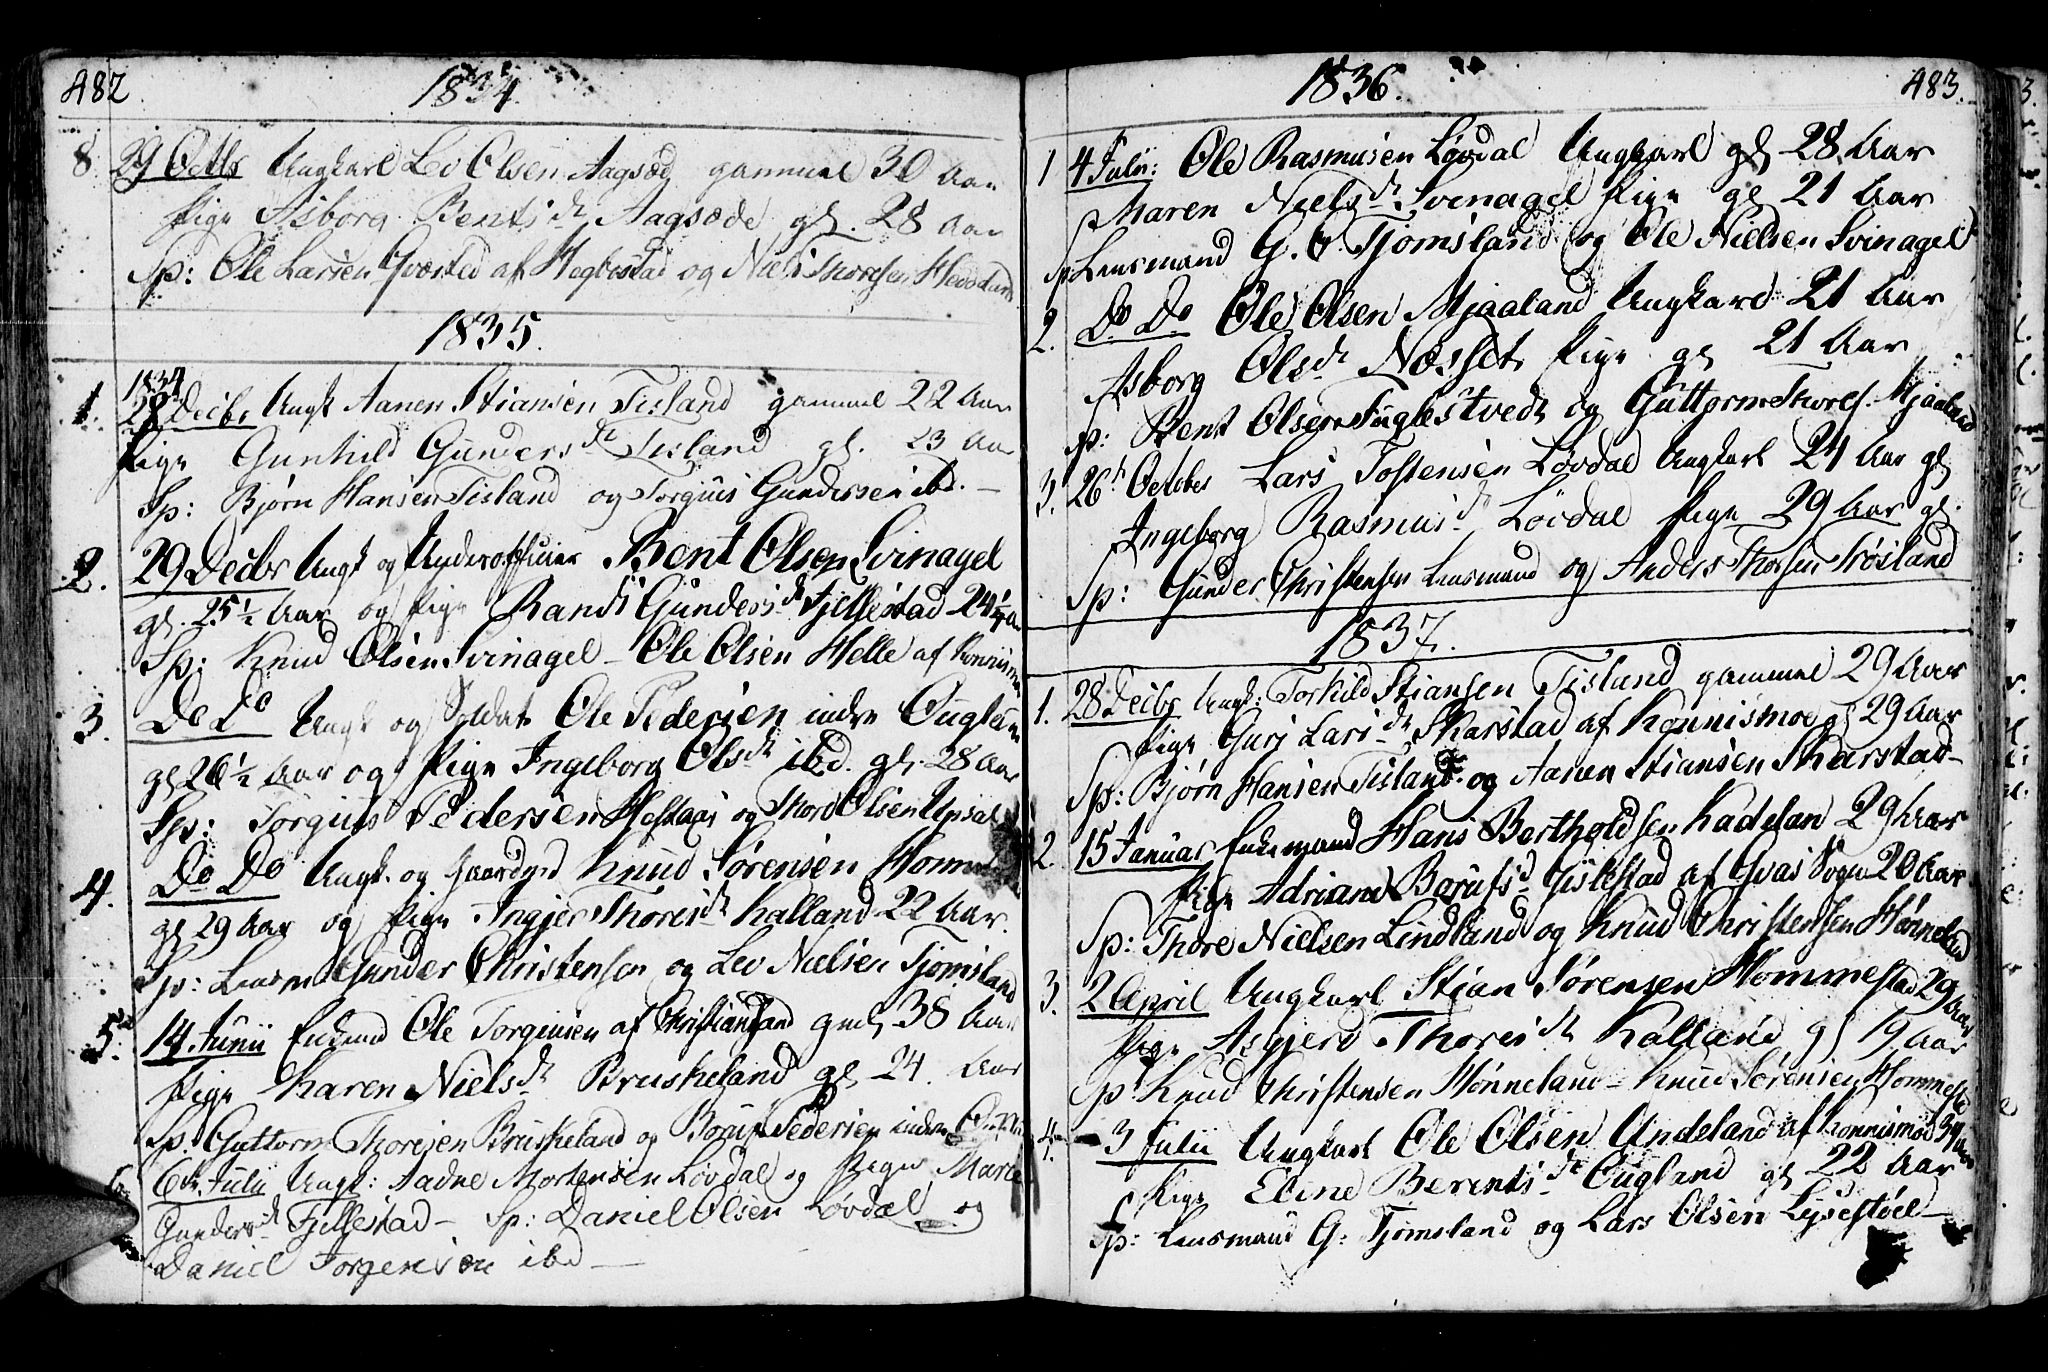 482
1834.
8 29 Octbr Ungkarl Lev Olsen Aagsæd gammel 30 Aar
Pige Asborg Bentsdr Aagsæde gl. 28 Aar
Sp: Ole Larsen Qværted af Hegbostad og Niels Thoresen
1835.
1834
1. 28 Decbr Ungk Aanen Stiansen Tisland gammel 22 Aar
Pige Gunhild Gundersdr Tisland gl. 23 Aar
Sp: Bjørn Hansen Tisland og Torgius Gundersen ibd. —
2. 29 Decbr Ungk og Underofficier Bent Olsen Svinagel
gl. 25½ Aar og Pige Randi Gundersdr Fjellestad 24½ Aar
Sp: Knud Olsen Svinagel – Ole Olsen Helle af
3. Do Do Ungk og Soldat Ole Pedersen indre Ougland
gl 26½ Aar og Pige Ingeborg Olsdr ibd. gl. 28 Aar
Sp: Torgius Pedersen Hestaas og Thord Olsen Upsal
4. Do Do Ungk. og Gaardmd Knud Sørensen
gl 29 Aar og Pige Angjer Thoresdr Kalland 22 Aar.
Sp: Lensm Gunder Christensen og Lev Nielsen Tjomsland
5. 14 Junii Enkemd Ole Torginsen af Christiansand gml 38 Aar
Pige Karen Nielsdr Brusheland gl 24. Aar
Sp. Guttorm Thoresen Brusheland og Boruf Pedersen indre
6. 6te Julii Ungk: Aadne Mortensen Løvdal og Pige Maren
Gundersdr Fjellestad – Sp: Daniel Olsen Løvdal og
Daniel Torgersen ibd —
1836.
483.
1 4 Julii: Ole Rasmusen Løvdal Ungkarl gl 28 Aar
Maren Nielsdr Svinagel Pige gl 21 Aar
Sp Lensmand G. C. Tjomsland og Ole Nielsen Svinagel
2. Do Do Ole Olsen Mjaaland Ungkarl 21 Aar
Asborg Olsdr Næsset Pige gl 21 Aar
Sp: Bent Olsen Fuglestvedt og Guttorm Thores. Mjaaland
3. 26de October Lars Tostensen Løvdal Ungkarl 24 Aar gl
Ingeborg Rasmusdr Løvdal Pige 29 Aar gl.
Sp: Gunder Christensen Lensmand og Anders Thorsen Trøsland
1837.
1. 28 Decbr Ungk: Torkild Stiansen Tisland gammel 29 Aar
Pige Guri Larsdr Skarstad af Konnismoe gl 29 Aar
Sp: Bjørn Hansen Tisland og Aanen Stiansen Skarstad –
2. 15 Januar Enkemand Hans Bertholdsen Kadelan 29 Aar
Pige Adriana Borufsd. Gislestad af Gvas Sogn 20 Aar
Sp: Thore Nielsen Lindland og Knud Christensen Hønneland
3. 2 April Ungkarl Stian Sørensen Hommestad 29 Aar
Pige Asgjerd Thoresdr Kalland gl 19 Aar
Sp: Knud Christensen Hønneland – Knud Sørensen Hommestad
4. – 3 Julii Ungkarl Ole Olsen Undeland af Konnismoe
Pige Eline Berentsdr Ougland gl 22 Aar
Sp: Lensmand G: Tjomsland og Lars Olsen Lysestøel –